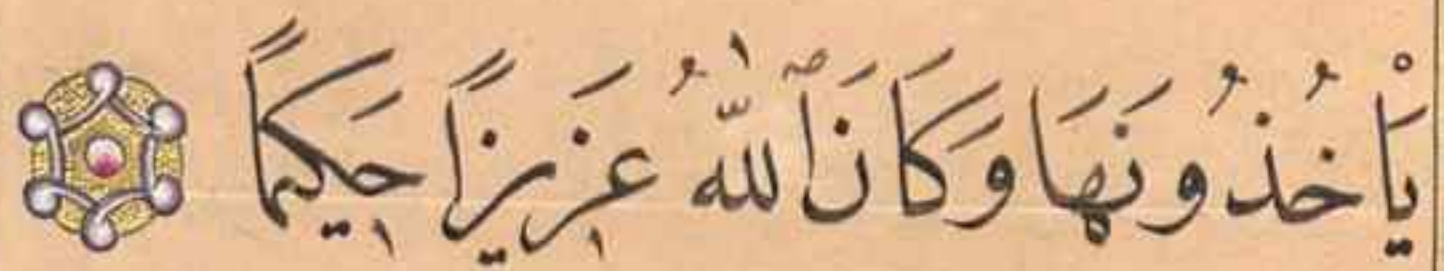 يَأْخُذُونَهَا وَكَانَ ٱللّٰهُ عَزِيزًا حَكِيمًا